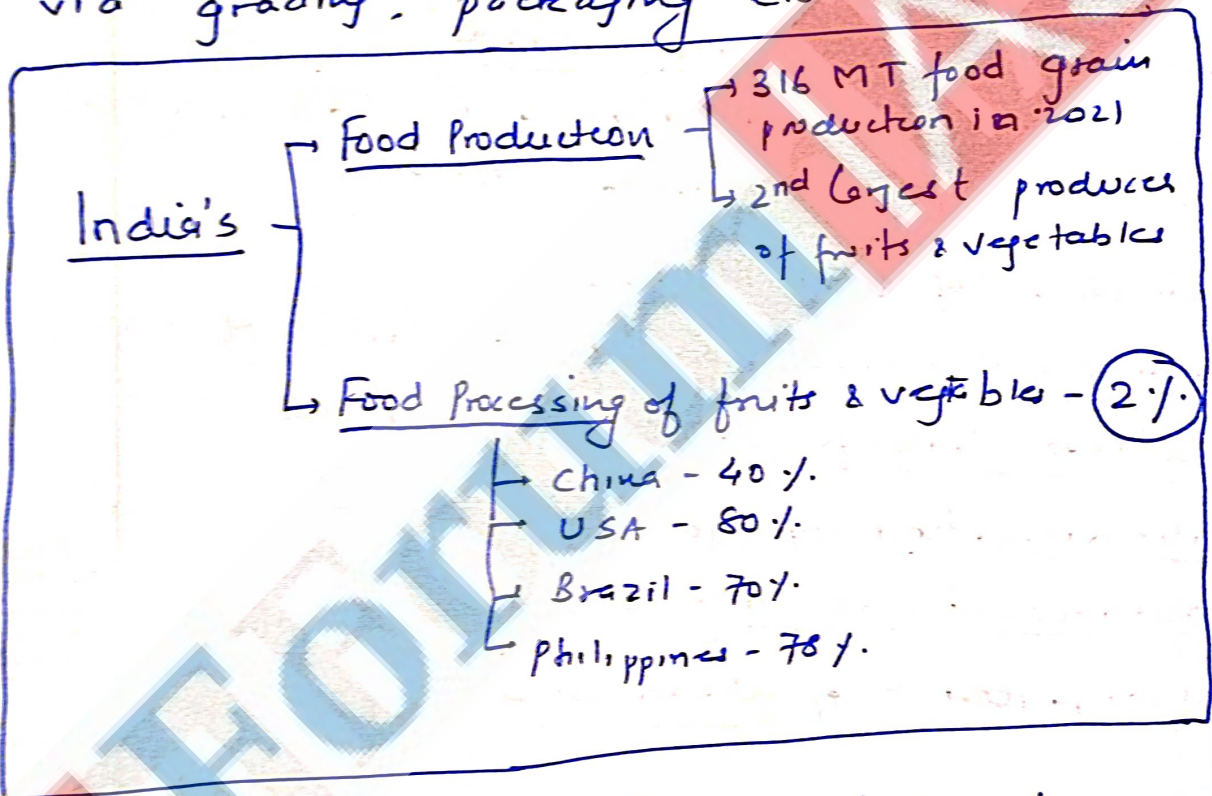 via grading, packaging
India's
Food Production
→ 316 MT food grain
production in 2021
2nd largest producer
of fruits & vegetables
Food Processing of fruits & vegetables - 2%
China - 40%
USA - 80%
Brazil - 70%
Philippines - 78%
Forum IAS